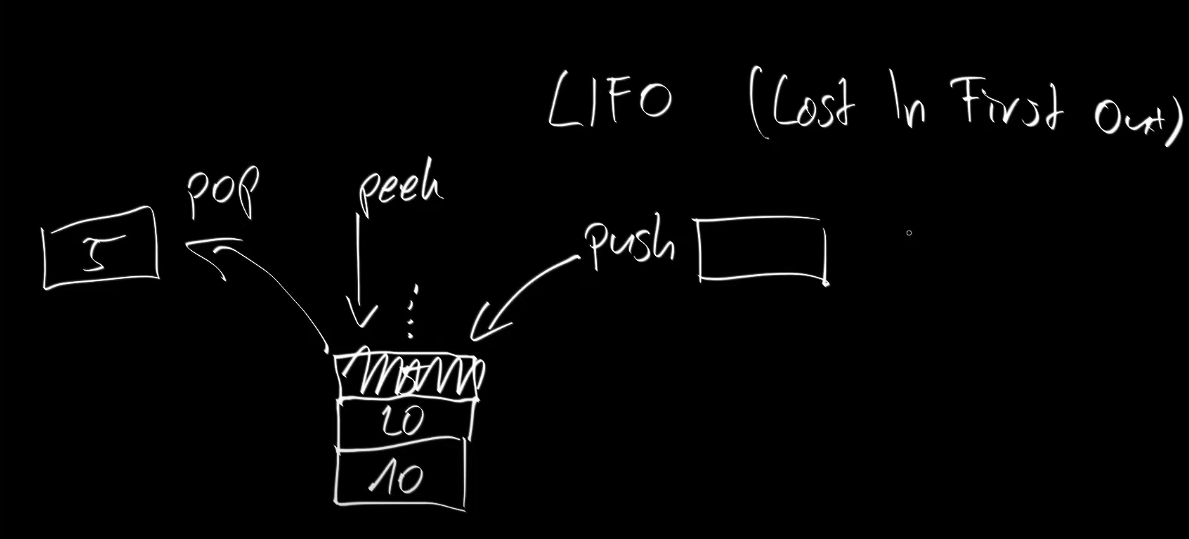 LIFO (Last In First Out)
pop peek
5 push
20
10